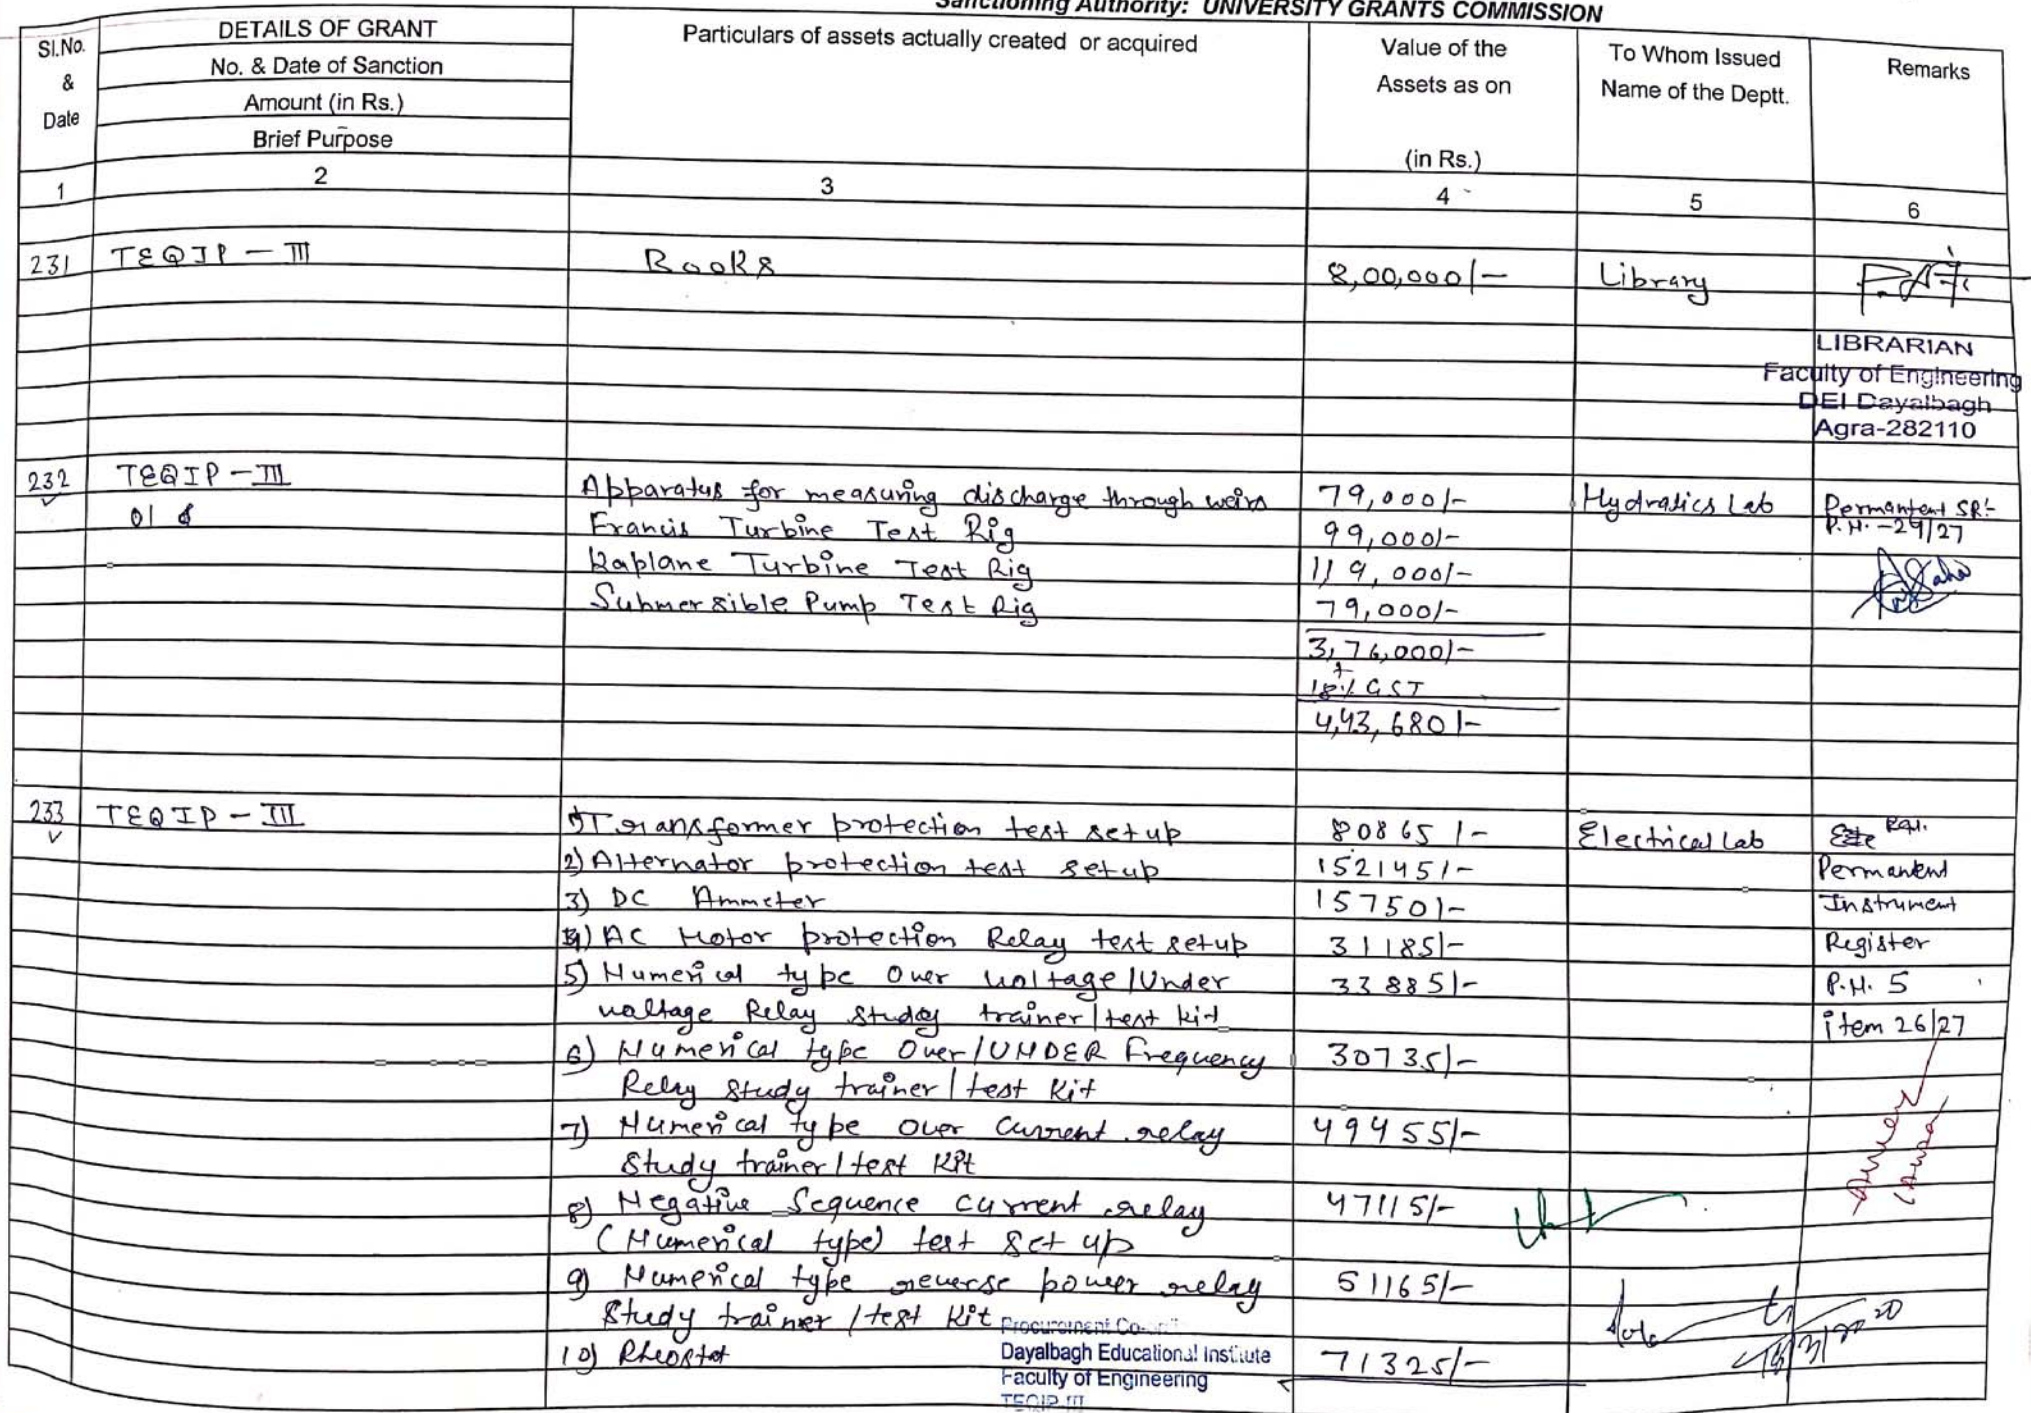 Sanctioning Authority: UNIVERSITY GRANTS COMMISSION
Sl.No. & Date
DETAILS OF GRANT
No. & Date of Sanction
Amount (in Rs.)
Brief Purpose
Particulars of assets actually created or acquired
Value of the Assets as on (in Rs.)
To Whom Issued Name of the Deptt.
Remarks
1 2 3 4 5 6
231 TEQIP - III Books 8,00,000/- Library
LIBRARIAN
Faculty of Engineering
DEI Dayalbagh
Agra-282110
232 TEQIP - III Apparatus for measuring discharge through weirs 79,000/- Hydralics Lab Permantent SR:-
01 Francis Turbine Test Rig 99,000/- P.N.-29/27
Kaplane Turbine Test Rig 119,000/-
Submersible Pump Test Rig 79,000/-
3,76,000/-
+
18% GST
4,43,680/-
233 TEQIP - III 1) Transformer protection test setup 80865/- Electrical Lab
2) Alternator protection test setup 152145/- Permanent
3) DC Ammeter 15750/- Instrument
4) AC Motor protection Relay test setup 31185/- Register
5) Numerical type Over voltage/Under 33885/- P.N. 5
voltage Relay study trainer/test kit item 26/27
6) Numerical type Over/UNDER Frequency 30735/-
Relay study trainer/test kit
7) Numerical type over current relay 49455/-
Study trainer/test kit
8) Negative Sequence current relay 47115/-
(Numerical type) test set up
9) Numerical type reverse power relay 51165/-
Study trainer/test kit
10) Rheostat 71325/-
Procurement
Dayalbagh Educational Institute
Faculty of Engineering
TEQIP III